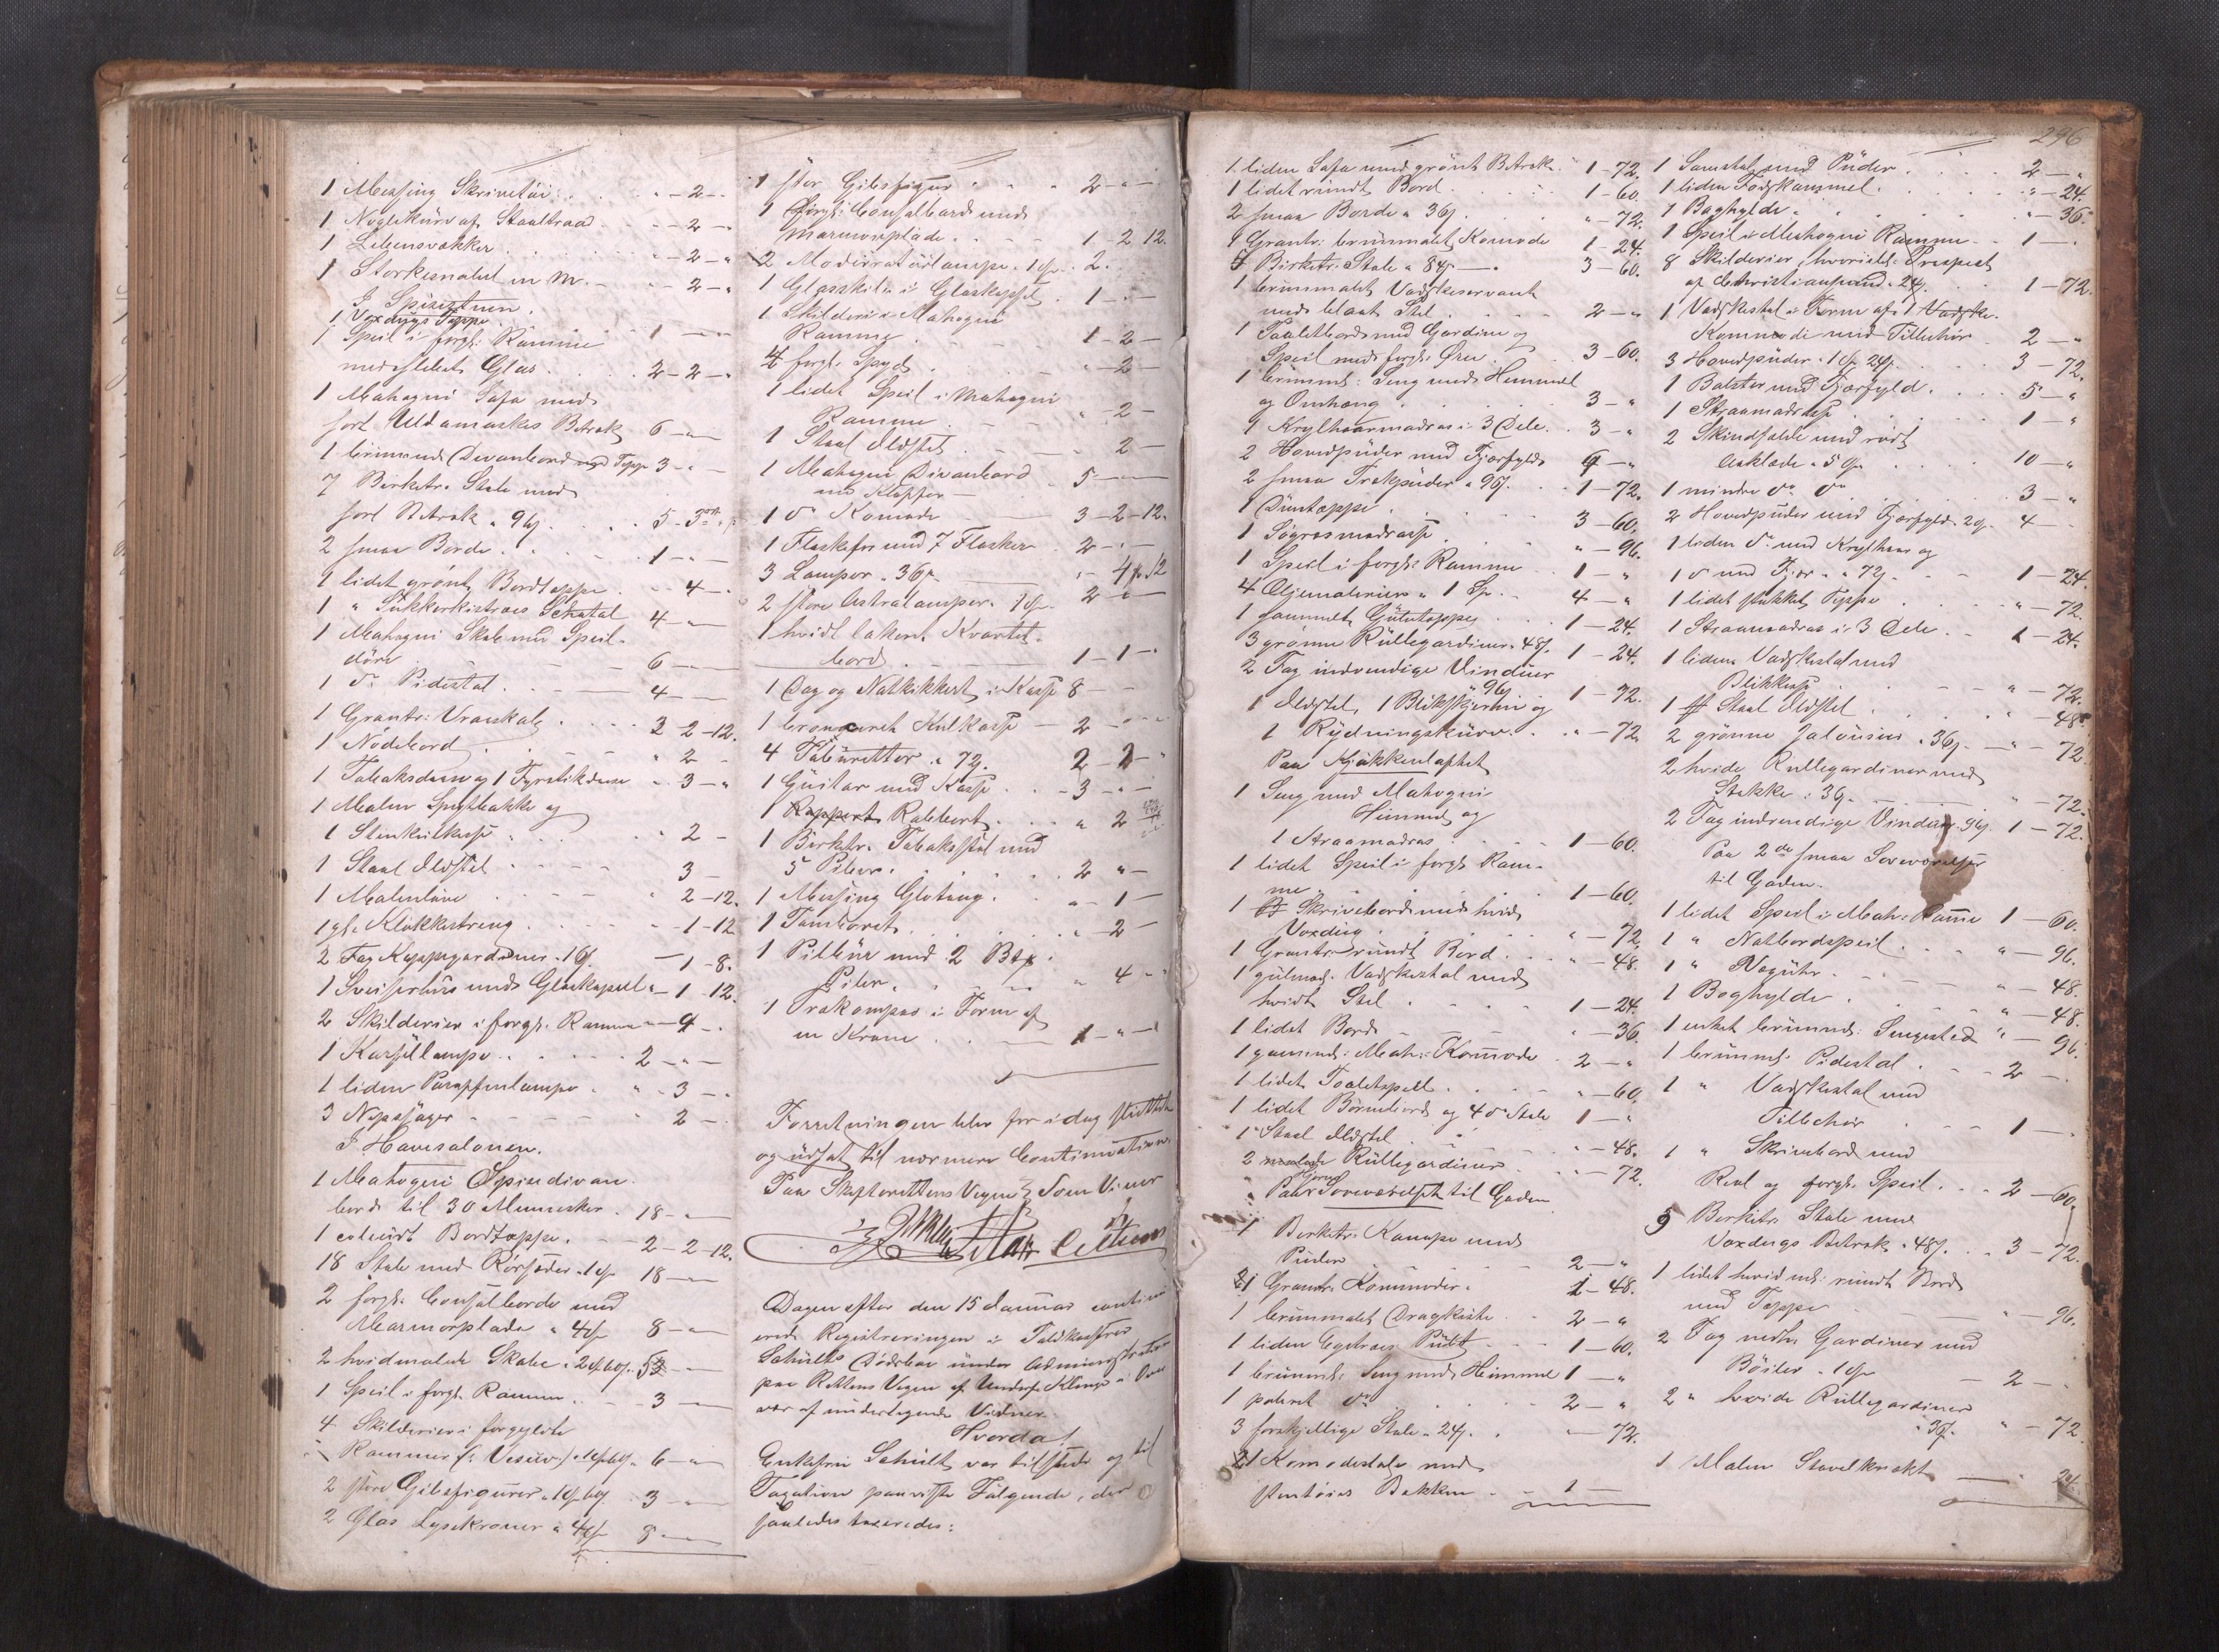 1 Messing Skrivetøi . . " - 2 - "
1 Nøglekurv af Staaltraad . . - 2 - "
1 Livensvækker . . " - 2 - "
1 Storkesnabel en m. - " - 2 - "
I Spisestuen.
1 Voxdugs Teppe.
1 Speil i forgt: Ramme 1 - " -
med slebet Glas . . 2 - 2 - "
1 Mahogni Sofa med
sort Uldamaskes Betræk 6 - " -
1 brunmalt Divanbord med Teppe 3 - " -
7 Birketr: Stole med
sort Betræk a 96ſ . . 5 - 3
2 smaa Borde . . 1 - " -
1 lidet grønt Bordteppe . - 4 - "
1 " Sukkerkistræes 4 - " -
1 Mahogni Skab med Speil-
døre 6 - " -
1 do Pidestal . . 4 - " -
1 Grantr: Vraaskab . . 3 - 2 - 12.
1 Nødebord . . " 2 -
1 Tobaksdaase og 1 Fyrstikdaase " - 3 - "
1 Malm Spytbakke og
1 Steenkulkasse . . " 2 -
1 Staal Ildstel . . 3 -
1 Malmløve . . " 2 - 12.
1 gl. Klokkestreng . . - 1 - 12
2 Fag Kappegardiner a 16ſ - 1 - 8.
1 Sveiserhuus med Glaskapsel " - 1 - 12.
2 Skilderier i forgt. Ramme - 4 - "
1 Karsellampe . . 2 - " -
1 liden Paraffinlampe . " - 3 - "
3 . . 2 -
I Havesalonen.
1 Mahogni Spisedivan-
bord til 30 Mennesker . 18 - " -
1 couleurt Bordteppe . - 2 - 2 - 12.
18 Stole med Rørsæder a 1 Sp 18 - " -
2 forgt: Consolborde med
Marmorplade a 4 Sp 8 - " -
2 hvidmalede Skabe a 2 Sp 60ſ. 5 - " -
1 Speil i forgt. Ramme . . 3 - " -
4 Skilderier i forgyldte
Rammer (: Vesuv:) a 1 Sp 60ſ " 6 - " -
2 store Gibsfigurer a 1 Sp 60ſ . 3 - " -
2 Glas Lysekroner a 4 Sp 8 - " -
1 stor Gibsfigur . . 2 - " -
1 forgt: Consolbord med
Marmorplade . . 1 - 2 12.
2 Moderatørlampe a 1 Sp . 2.
1 Glasskilt i Glaskapsel . 1 - " -
1 Skilderi i Mahogni
Ramme . . 1 - 2 -
4 forgt. Spyd . . " - 2 -
1 lidet Speil i Mahogni
Ramme . . " - 2 -
1 Staal Ildstel . . 2 -
1 Mahogni Divanbord
med Klaffer - 5 - " -
1 do Komode 3 - 2 - 12.
1 Flaskefor med 7 Flasker . 2 - " -
3 Lamper a 36ſ
2 store Astrallamper a 1 Sp . 2 - " -
1 hvidt lakert Kvartet-
bord . . 1 - 1 - "
1 Dag og Natkikkert i Kasse 8 - -
1 bronceret Kulkasse - 2 - " -
4 Tabouretter a 72ſ. 2 - 2 - "
1 Guitar med Kasse . . - 3 - " -
1 Rabbert . . " 2
1 Birketr. Tobaksstol med
5 Piber . . 2 " -
1 Messing Glotang . . " - 1 -
1 Tambouret . . " - 2 -
1 Pillbue med 2 Btr
Piler . . " 4 - "
1 Orakompas i Form af
en Krone . . 1 - " -
Forretningen blev for idag sluttet
og udsat til nærmere Continuation.
Paa Skifterettens Vegne Som Vidner
Dagen efter den 15 Januar continu-
erede Registreringen i Toldkasserer
Schults Dødsbo under Administration
paa Rettens Vegne af Underf: Klinge i Over-
vær af undertegnede Vidner.
Hvorda!
Enkefru Schult var tilstede og til
Taxation paaviste Følgende, der
saaledes taxeredes:
296
1 liden Sofa med grønt Betræk . 1 - 72.
1 lidet rundt Bord . . 1 - 60.
2 smaa Borde a 36ſ. . . " - 72.
1 Grantr: brunmalet Komode 1 - 24.
5 Birketr: Stole a 84ſ. - " 3 - 60.
1 brunmalet Vadskeservante
med blaat Stel . . 2 - "
1 Toiletbord med Gardine og
Speil med forgt: Ørn . . 3 - 60.
1 brunmt: Seng med Himmel
og Omhæng . . 3 - "
1 Krylhaarmadras i 3 Dele . 3 - "
2 Hovedpuder med Fjærfyld 4 - "
2 smaa Trækpuder a 96ſ. . 1 - 72.
1 Duntæppe . . 3 - 60.
1 Søgræsmadrasse . . " - 96.
1 Speil i forgt: Ramme . 1 - "
4 Oljemalerier a 1 Sp. - 4 - "
1 gammelt Gulvteppe . . 1 - 24.
3 grønne Rullegardiner a 48ſ. 1 - 24.
2 Fag indvendige Vinduer
a 96ſ 1 - 72.
1 Ildstel, 1 Blikskjerm og
1 Rydningskurv . . " - 72.
Paa Kjøkkenloftet
1 Seng med Mahogni
Himmel og
1 Straamadras . . 1 - 60.
1 lidet Speil i forgt. Ram-
me . . 1 - 60.
1 Skrivebord med hvid
Voxdug . . " - 72.
1 Grantr: rundt Bord . . " - 48.
1 gulmal. Vadskestol med
hvidt Stel . . 1 - 24.
1 lidet Bord . . " - 36.
1 gammel: Mah: Komode . 2 - "
1 lidet Toiletspeil . . " - 60.
1 lidet Børnebord og 4 do Stole 1 - "
1 Staal Ildstel . . " - 48.
2 Rullegardiner . . " - 72.
Paa Hjørne Soveværelset til Gaden
1 Birketr. Kanape med
Puder . . 2 - "
1 Grantr. Kommoder . 1 - 48.
1 brunmalet Dragkiste . 2 - "
1 liden Egetræes Pult . . 1 - 60.
1 brunmt: Seng med Himmel 1 - "
1 poleret do . . 2 - "
3 forskjellige Stole a 24ſ. . " - 72.
1 Komodestol med
stentøies Bækken . . 1 -
1 Lænestol med Puder . . 2 - "
1 liden Fodskammel . . " - 24.
1 Boghylde . . " - 36.
1 Speil i Mahogni Ramme . . 1 - "
8 Skilderier, hvoriblt: Prospect
af Christiansund a 24ſ. . 1 - 72.
1 Vadskestol i Form af 1 Vadske-
Komode med Tilbehør 2 - "
3 Hovedpuder a 1 Sp 24ſ. . 3 - 72.
1 Bolster med Fjærfyld . . 5 - "
1 Straamadrasse . . 1 - "
2 Skindfelde med rødt
Aaklæde a 5 Sp . . 10 - "
1 mindre do do . . 3 - "
2 Hovedpuder med Fjærfyld a 2 Sp. 4 -
1 liden do med Krylhaar og
1 do med Fjær a 72ſ - - 1 - 24.
1 lidet stukket Teppe . . " - 72.
1 Straamadras i 3 Dele . - 1 - 24.
1 liden Vadskestol med
Blikkasse . . " - 72.
1 Staal Ildstel . . " - 48.
2 grønne Jalousier a 36ſ. - " - 72.
2 hvide Rullegardiner med
Stokke a 36ſ. . " - 72.
2 Fag indvendige Vinduer a 96ſ. 1 - 72.
Paa 2de smaa Soveværelser
til Gaden.
1 lidet Speil i Mah: Ramme 1 - 60.
1 " Natbordspeil . . " - 96.
1 " Væguhr . . " - 48.
1 Boghylde . . " - 48.
1 enkelt brunmal: Sengested " - 96.
1 brunmt: Pidestal . . 2 - "
1 " Vadskestol med
Tilbehør . . 1 - "
1 " Skrivebord med
Reol og forgt. Speil . . 2 - 60.
5 Birketr Stole med
Voxdugs Betræk a 48ſ. . . 3 - 72.
1 lidet hvid mt: rundt Bord
med Teppe . . " - 96.
2 Fag neth. Gardiner med
Bøiler a 1 Sp - 2 - "
2 " hvide Rullegardiner
a 36ſ. " - 72
1 Malm Støvelknekt - " 24.